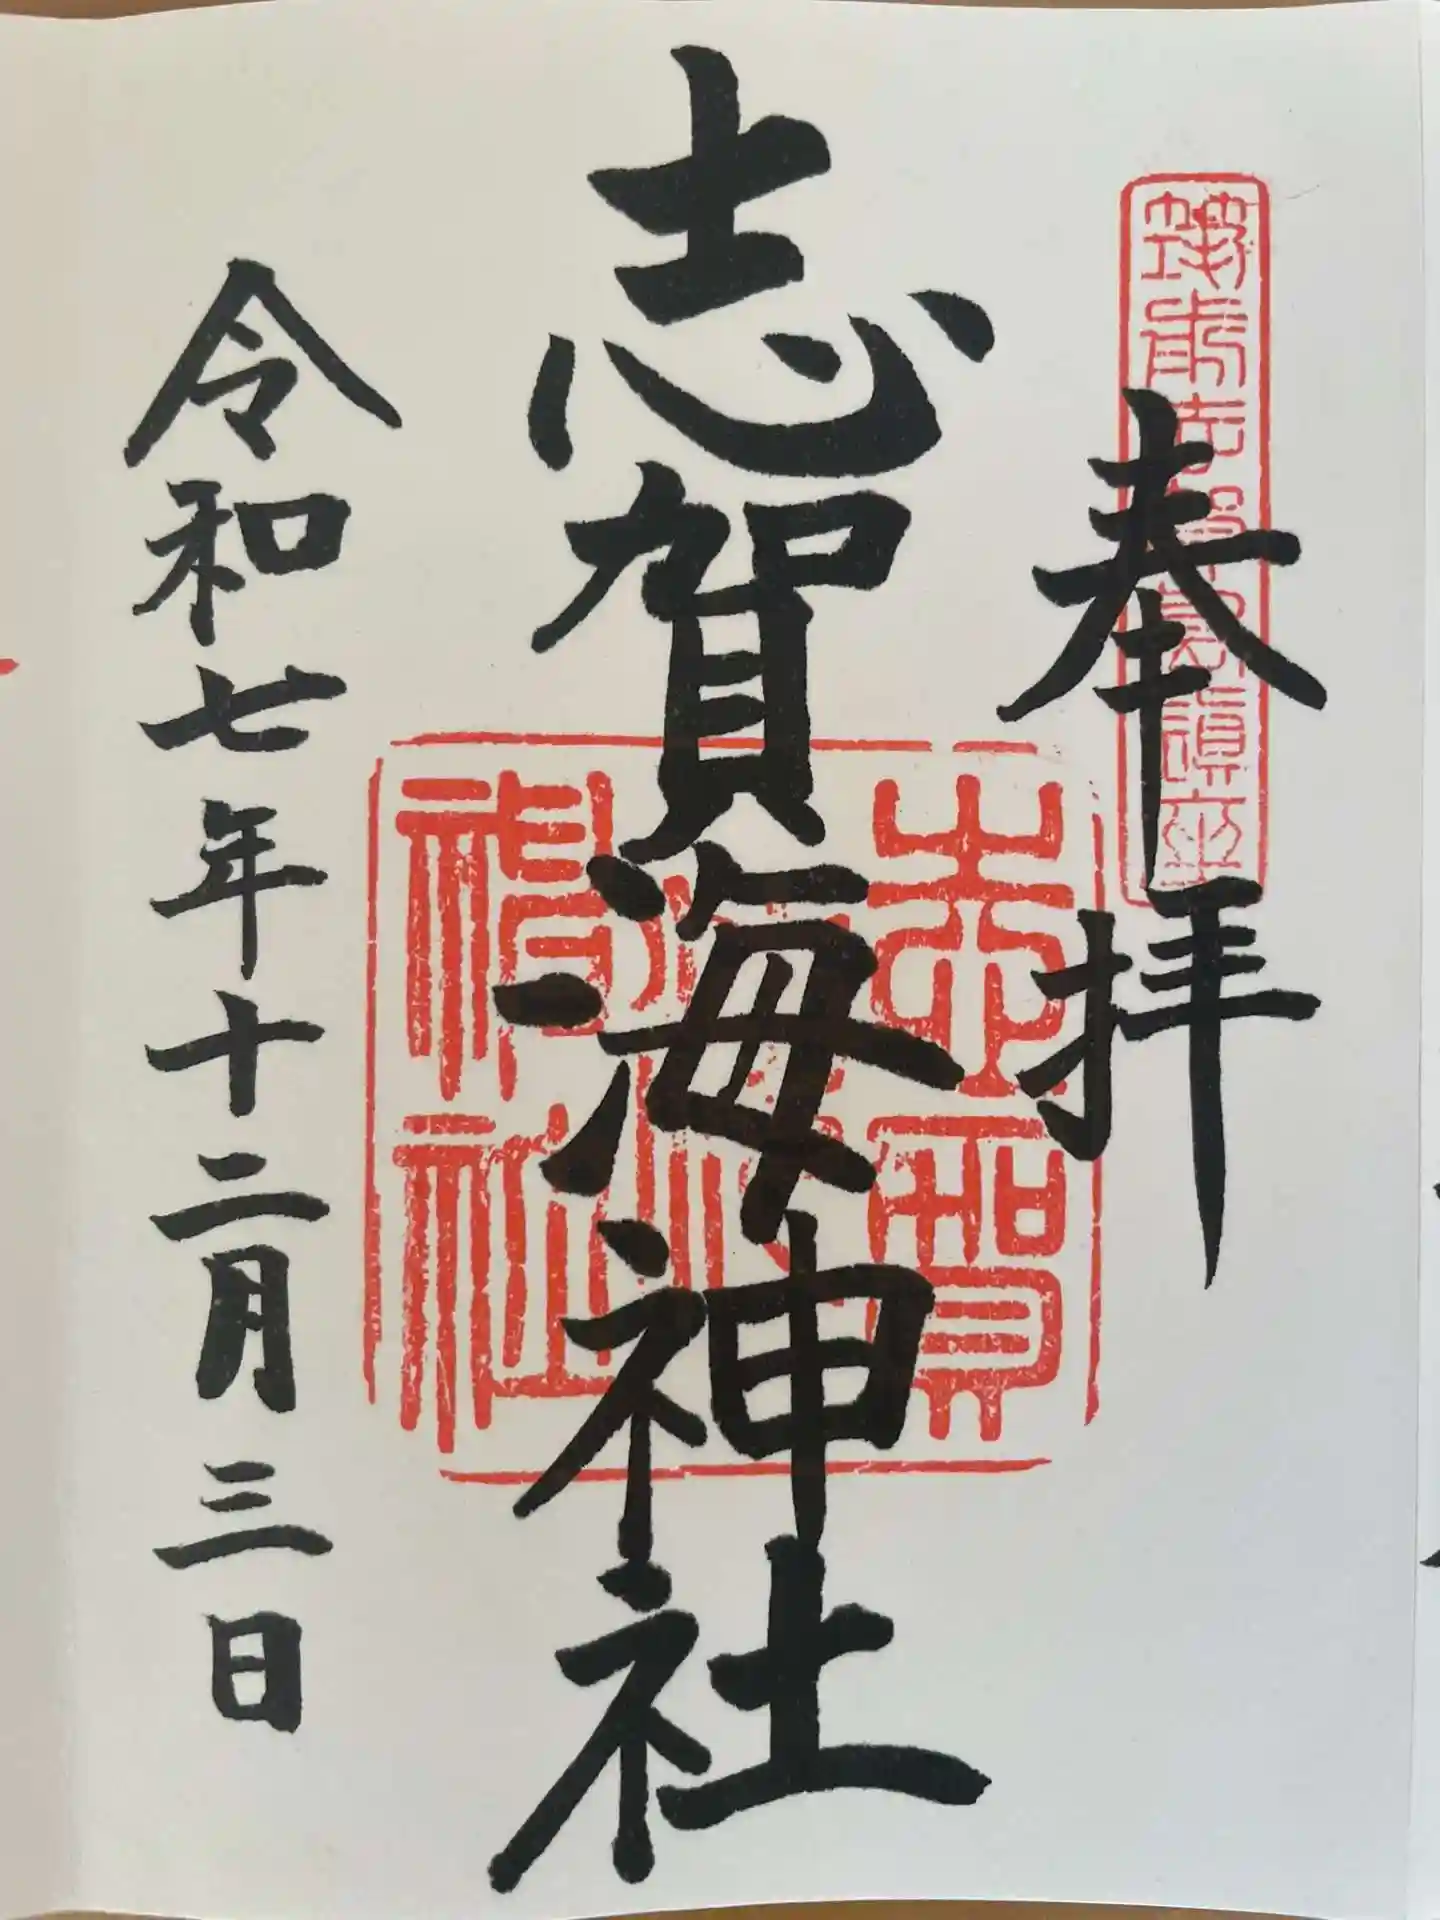 奉拝
志賀海神社
志賀海神社
令和七年十二月三日